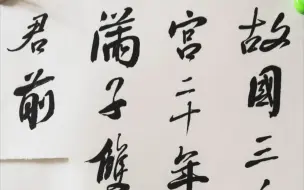 故國三
宮二十年
滿子雙
君前